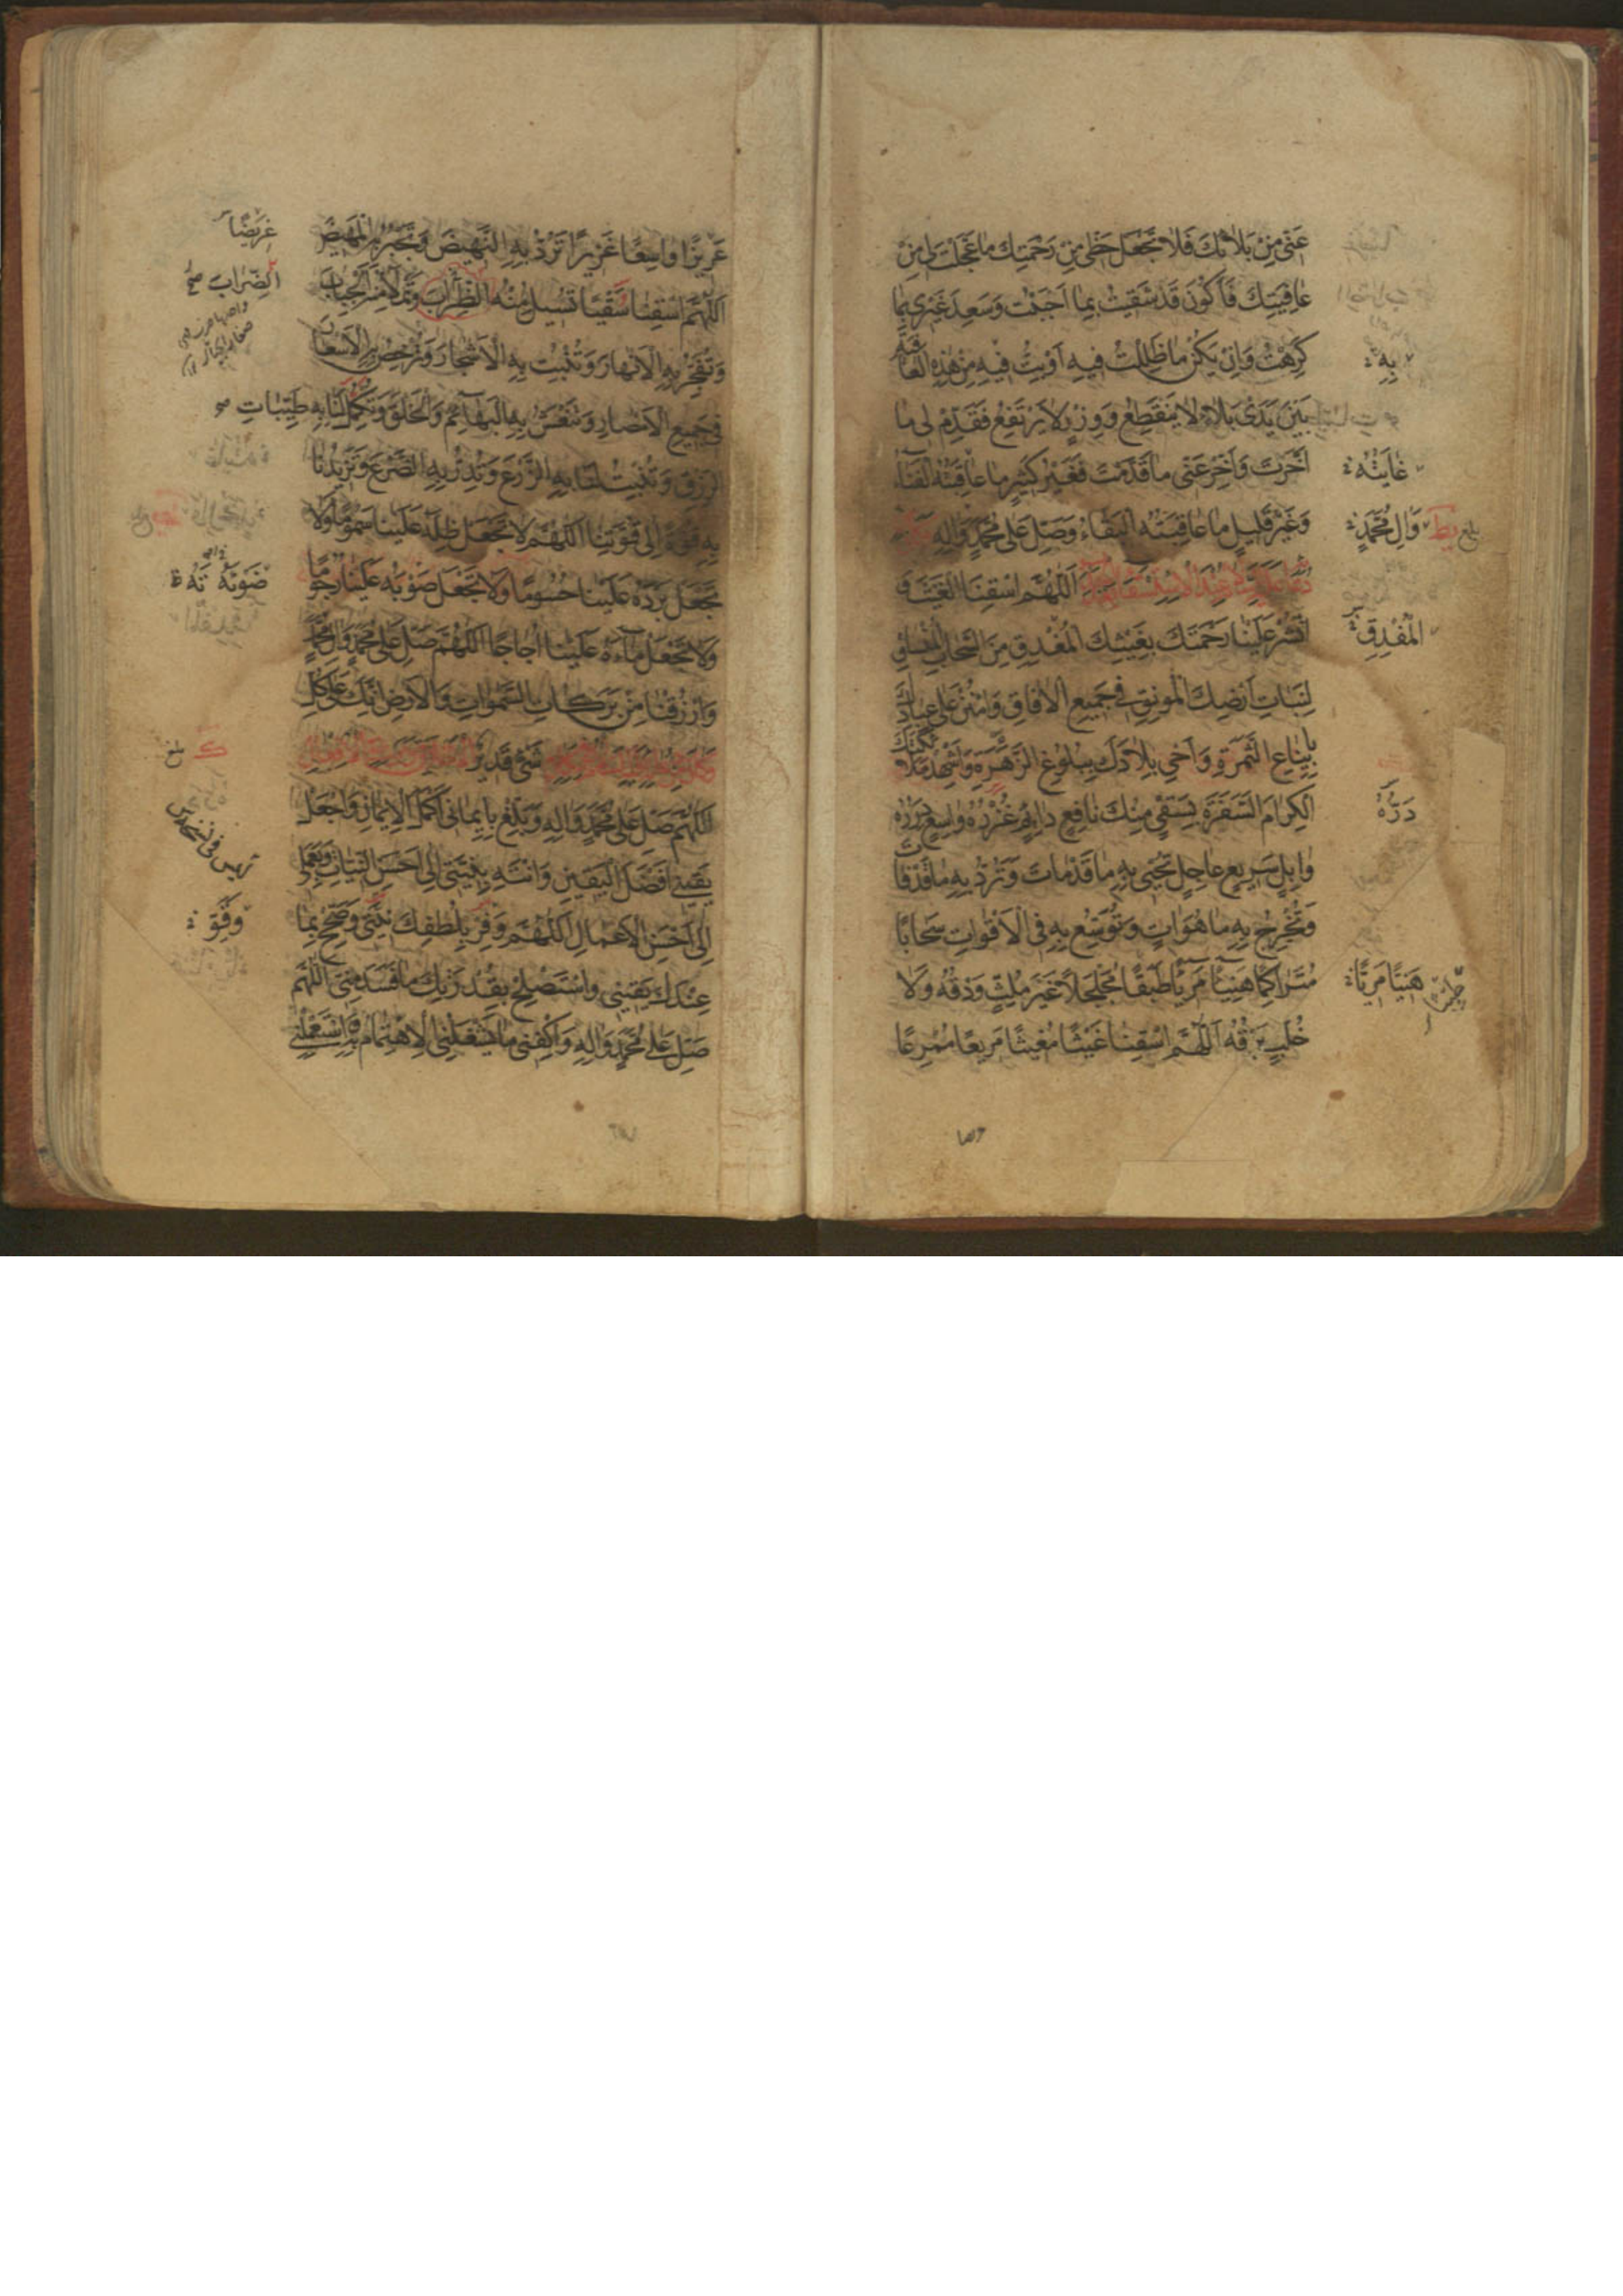 عَنّى مِنْ بَلَائِكَ فَلَا تَجْعَلْ حَظّى مِنْ رَحْمَتِكَ مَا عَجَّلْتَ لى مِنْ
عَافِيَتِكَ فَاَكُونَ قَدْ شَقيتُ بِمَا اَحْبَبْتُ وَسَعِدَ غَيْرى بِمَا
كَرِهْتُ وَاِنْ يَكُنْ مَا ظَلِلْتُ فيهِ اَوْ بِتُّ فيهِ مِنْ هٰذِهِ الْعَافِيَةِ
بِهِ
بَيْنَ يَدَىْ بَلَاءٍ لَا يَنْقَطِعُ وَوِزْرٍ لَا يَرْتَفِعُ فَقَدِّمْ لى مَا
اَخَّرْتَ وَاَخِّرْ عَنّى مَا قَدَّمْتَ فَغَيْرُ كَثيرٍ مَا عَاقِبَتُهُ الْفَنَاءُ
غَايَتُهُ
وَغَيْرُ قَليلٍ مَا عَاقِبَتُهُ الْبَقَاءُ وَصَلِّ عَلى مُحَمَّدٍ وَالِهِ
وَالِ مُحَمَّدٍ
بلغ
اَللّٰهُمَّ اسْقِنَا الْغَيْثَ وَ
انْشُرْ عَلَيْنَا رَحْمَتَكَ بِغَيْثِكَ الْمُغْدِقِ مِنَ السَّحَابِ الْمُنْسَاقِ
الْمُغْدِقِ
لِنَبَاتِ اَرْضِكَ الْمُونِقِ فى جَميعِ الْافَاقِ وَامْنُنْ عَلى عِبَادِكَ
بِاينَاعِ الثَّمَرَةِ وَاَحْىِ بِلَادَكَ بِبُلُوغِ الزَّهَرَةِ وَاَشْهِدْ مَلَائِكَتَكَ
الْكِرَامَ السَّفَرَةَ بِسَقْىٍ مِنْكَ نَافِعٍ دَائِمٍ غُزْرُهُ وَاسِعٍ دِرَرُهُ
دَرُّهُ
وَابِلٍ سَريعٍ عَاجِلٍ تُحْيى بِهِ مَا قَدْ مَاتَ وَتَرُدُّ بِهِ مَا قَدْ فَاتَ
وَتُخْرِجُ بِهِ مَا هُوَ اتٍ وَتُوَسِّعُ بِهِ فِى الْاَقْوَاتِ سَحَابًا
مُتَرَاكِمًا هَنيئًا مَريئًا طَبَقًا مُجَلْجَلًا غَيْرَ مُلِثٍّ وَدْقُهُ وَلَا
هَنيًّا مَريًّا
خُلَّبٍ بَرْقُهُ اَللّٰهُمَّ اسْقِنَا غَيْثًا مُغيثًا مَريعًا مُمْرِعًا
عَريضًا وَاسِعًا غَزيرًا تَرُدُّ بِهِ النَّهيضَ وَتَجْبُرُ بِهِ الْمَهيضَ
اَللّٰهُمَّ اسْقِنَا سَقْيًا تُسيلُ مِنْهُ الظِّرَابَ وَتَمْلَأُ مِنْهُ الْجِبَابَ
الضِّرَاب صح
وَتُفَجِّرُ بِهِ الْاَنْهَارَ وَتُنْبِتُ بِهِ الْاَشْجَارَ وَتُرْخِصُ بِهِ الْاَسْعَارَ
فى جَميعِ الْاَمْصَارِ وَتَنْعَشُ بِهِ الْبَهَائِمَ وَالْخَلْقَ وَتُكْمِلُ لَنَا بِهِ طَيِّبَاتِ
الرِّزْقِ وَتُنْبِتُ لَنَا بِهِ الزَّرْعَ وَتُدِرُّ بِهِ الضَّرْعَ وَتَزيدُنَا
بِهِ قُوَّةً اِلى قُوَّتِنَا اَللّٰهُمَّ لَا تَجْعَلْ ظِلَّهُ عَلَيْنَا سَمُومًا وَلَا
تَجْعَلْ بَرْدَهُ عَلَيْنَا حُسُومًا وَلَا تَجْعَلْ صَوْبَهُ عَلَيْنَا رُجُومًا
وَلَا تَجْعَلْ مَاءَهُ عَلَيْنَا اُجَاجًا اَللّٰهُمَّ صَلِّ عَلى مُحَمَّدٍ وَالِ مُحَمَّدٍ
وَارْزُقْنَا مِنْ بَرَكَاتِ السَّمٰوَاتِ وَالْاَرْضِ اِنَّكَ عَلى كُلِّ
شَىْءٍ قَديرٌ
بلغ
اَللّٰهُمَّ صَلِّ عَلى مُحَمَّدٍ وَالِهِ وَبَلِّغْ بِايمَانى اَكْمَلَ الْايمَانِ وَاجْعَلْ
يَقينى اَفْضَلَ الْيَقينِ وَانْتَهِ بِنِيَّتى اِلى اَحْسَنِ النِّيَّاتِ وَبِعَمَلى
اِلى اَحْسَنِ الْاَعْمَالِ اَللّٰهُمَّ وَفِّرْ بِلُطْفِكَ نِيَّتى وَصَحِّحْ بِمَا
عِنْدَكَ يَقينى وَاسْتَصْلِحْ بِقُدْرَتِكَ مَا فَسَدَ مِنّى اَللّٰهُمَّ
صَلِّ عَلى مُحَمَّدٍ وَالِهِ وَاكْفِنى مَا يَشْغَلُنِى الْاِهْتِمَامُ بِهِ وَاسْتَعْمِلْنى